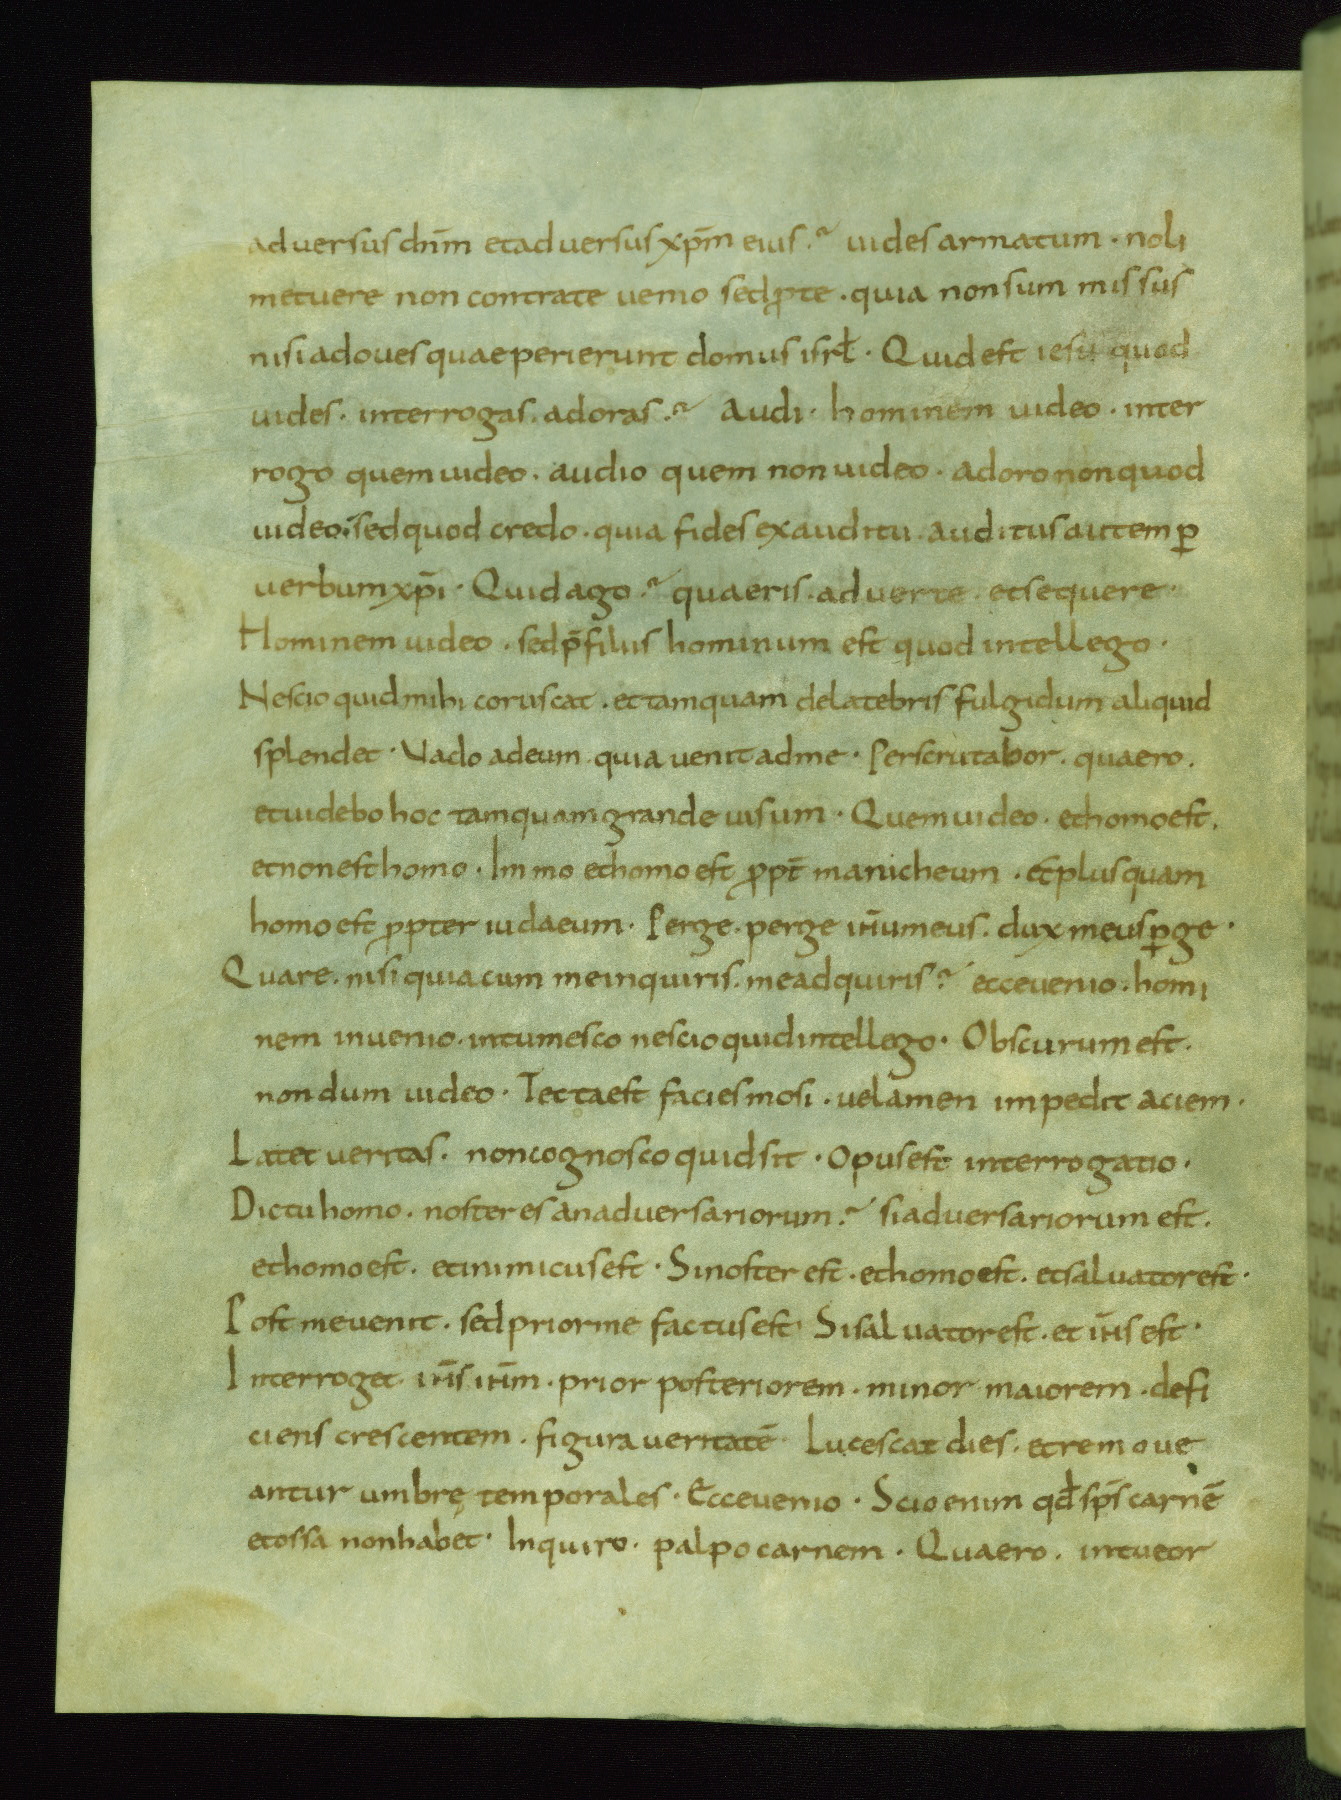 aduersus dnm̄ et aduersus xp̄m eius.? uides armatum · noli
metuere non contra te uenio sed ꝓpte · quia non sum missus
nisi ad oues quae perierunt domus isrl̄ · Quid est iesu quod
uides · interrogas · adoras.? Audi · hominem uideo · inter
rogo quem uideo · audio quem non uideo · adoro non quod
uideo; sed quod credo · quia fides ex auditu · auditus autem ꝑ
uerbum xp̄i · Quid ago.? quaeris · aduerte · et sequere ·
Hominem uideo · sed p̄ filius hominum est quod intellego ·
Nescio quid mihi coruscat · et tamquam de latebris fulgidum aliquid
splendet · Vado ad eum · quia uenit ad me · Perscrutabor · quaero ·
et uidebo hoc tamquam grande uisum · Quem uideo · et homo est ·
et non est homo · Immo et homo est ꝓpt̄ manicheum · Et plus quam
homo est ꝓpter iudaeum · Perge · perge iñium eus · dux meus ꝑge ·
Quare · nisi quia cum me inquiris · me adquiris.? ecce uenio · homi
nem inuenio · intumesco nescio quid intellego · Obscurum est ·
nondum uideo · Tecta est facies mosi · uelamen impedit aciem ·
Latet ueritas · non cognosco quid sit · Opus est interrogatio ·
Dic tu homo · noster es an aduersariorum.? si aduersariorum est ·
et homo est · et inimicus est · Si noster est · et homo est · et saluator est ·
Post me uenit · sed prior me factus est · Si saluator est · et ih̄s est ·
Interroget ih̄s ih̄m · prior posteriorem · minor maiorem · defi
ciens crescentem · figura ueritatē · Lucescat dies · et remoue
antur umbrę temporales · Ecce uenio · Scio enim qd̄ sp̄s carnē
et ossa non habet · Inquiro · palpo carnem · Quaero · intueor